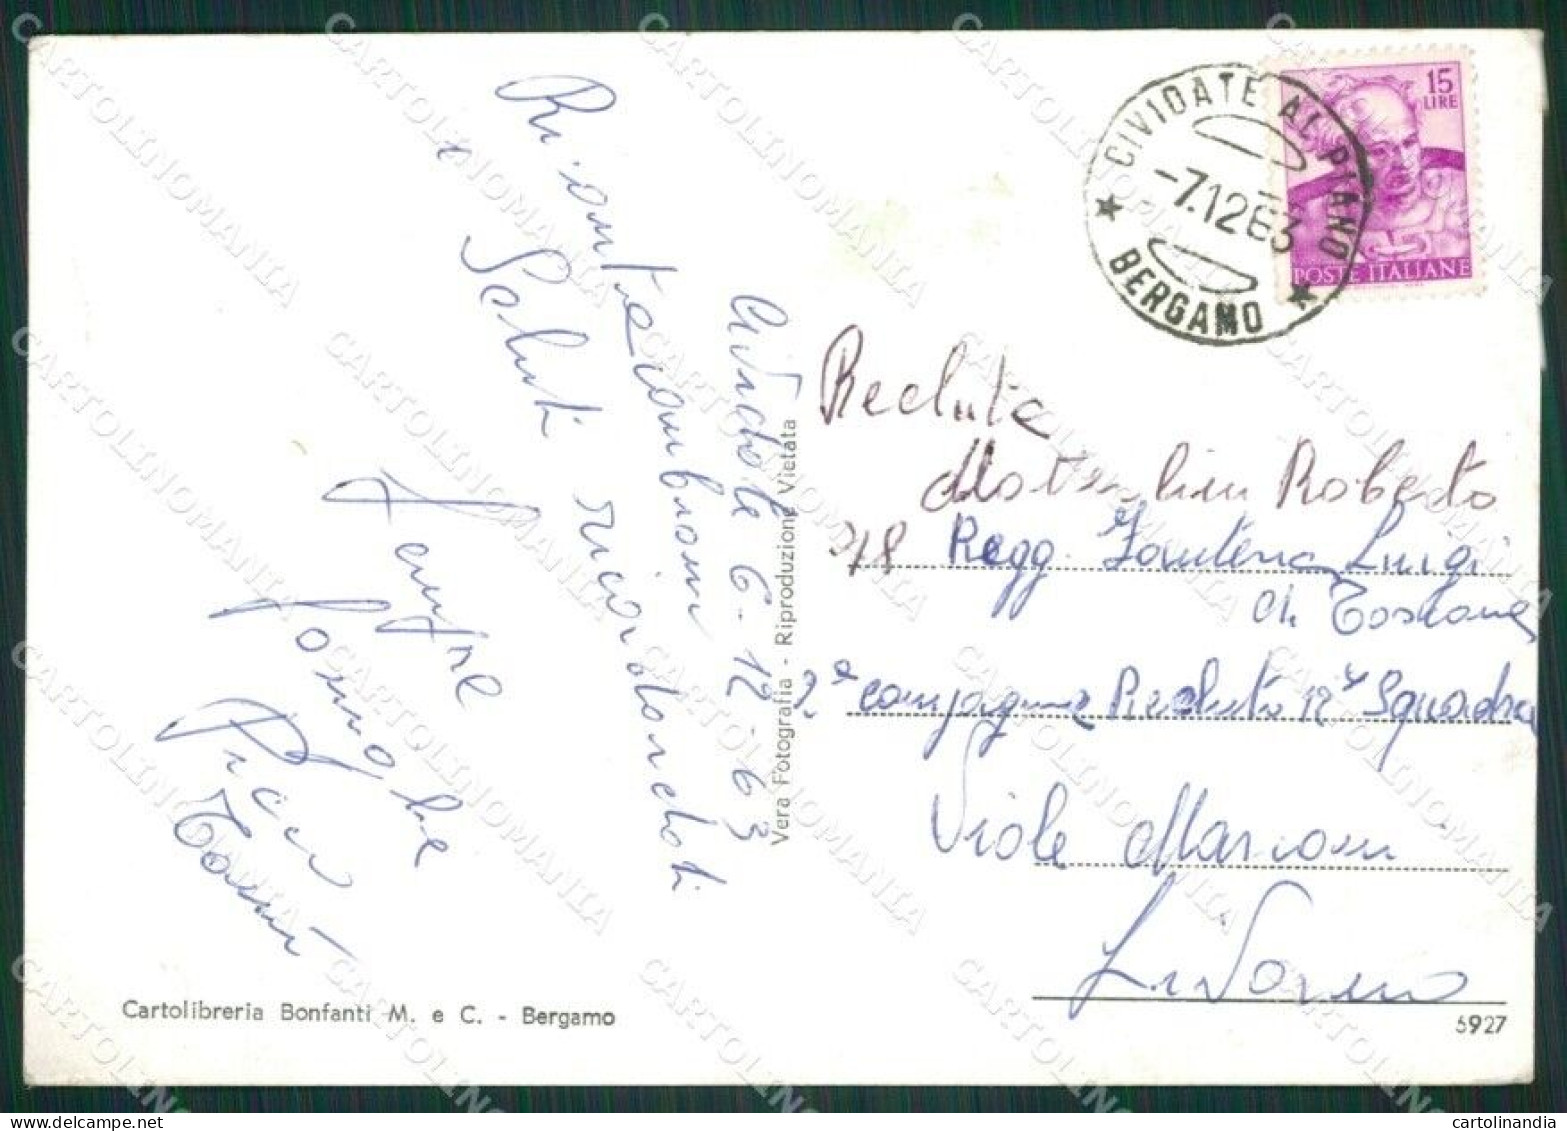 Cividate 6-12-63
Ricontracambiam
i Saluti ricordandoti
sempre
famiglia
Pr
Tomm
Vera Fotografia - Riproduzione Vietata
Cartolibreria Bonfanti M. e C. - Bergamo
CIVIDATE AL PIANO
-7.12.63
BERGAMO
15
LIRE
POSTE ITALIANE
Recluta
Roberto
78 Regg. Fanteria Lupi
di Toscana
2ª compagnia Recluta 12ª Squadra
Viale Marconi
Livorno
5927
CARTOLINOMANIA
cartolinandia